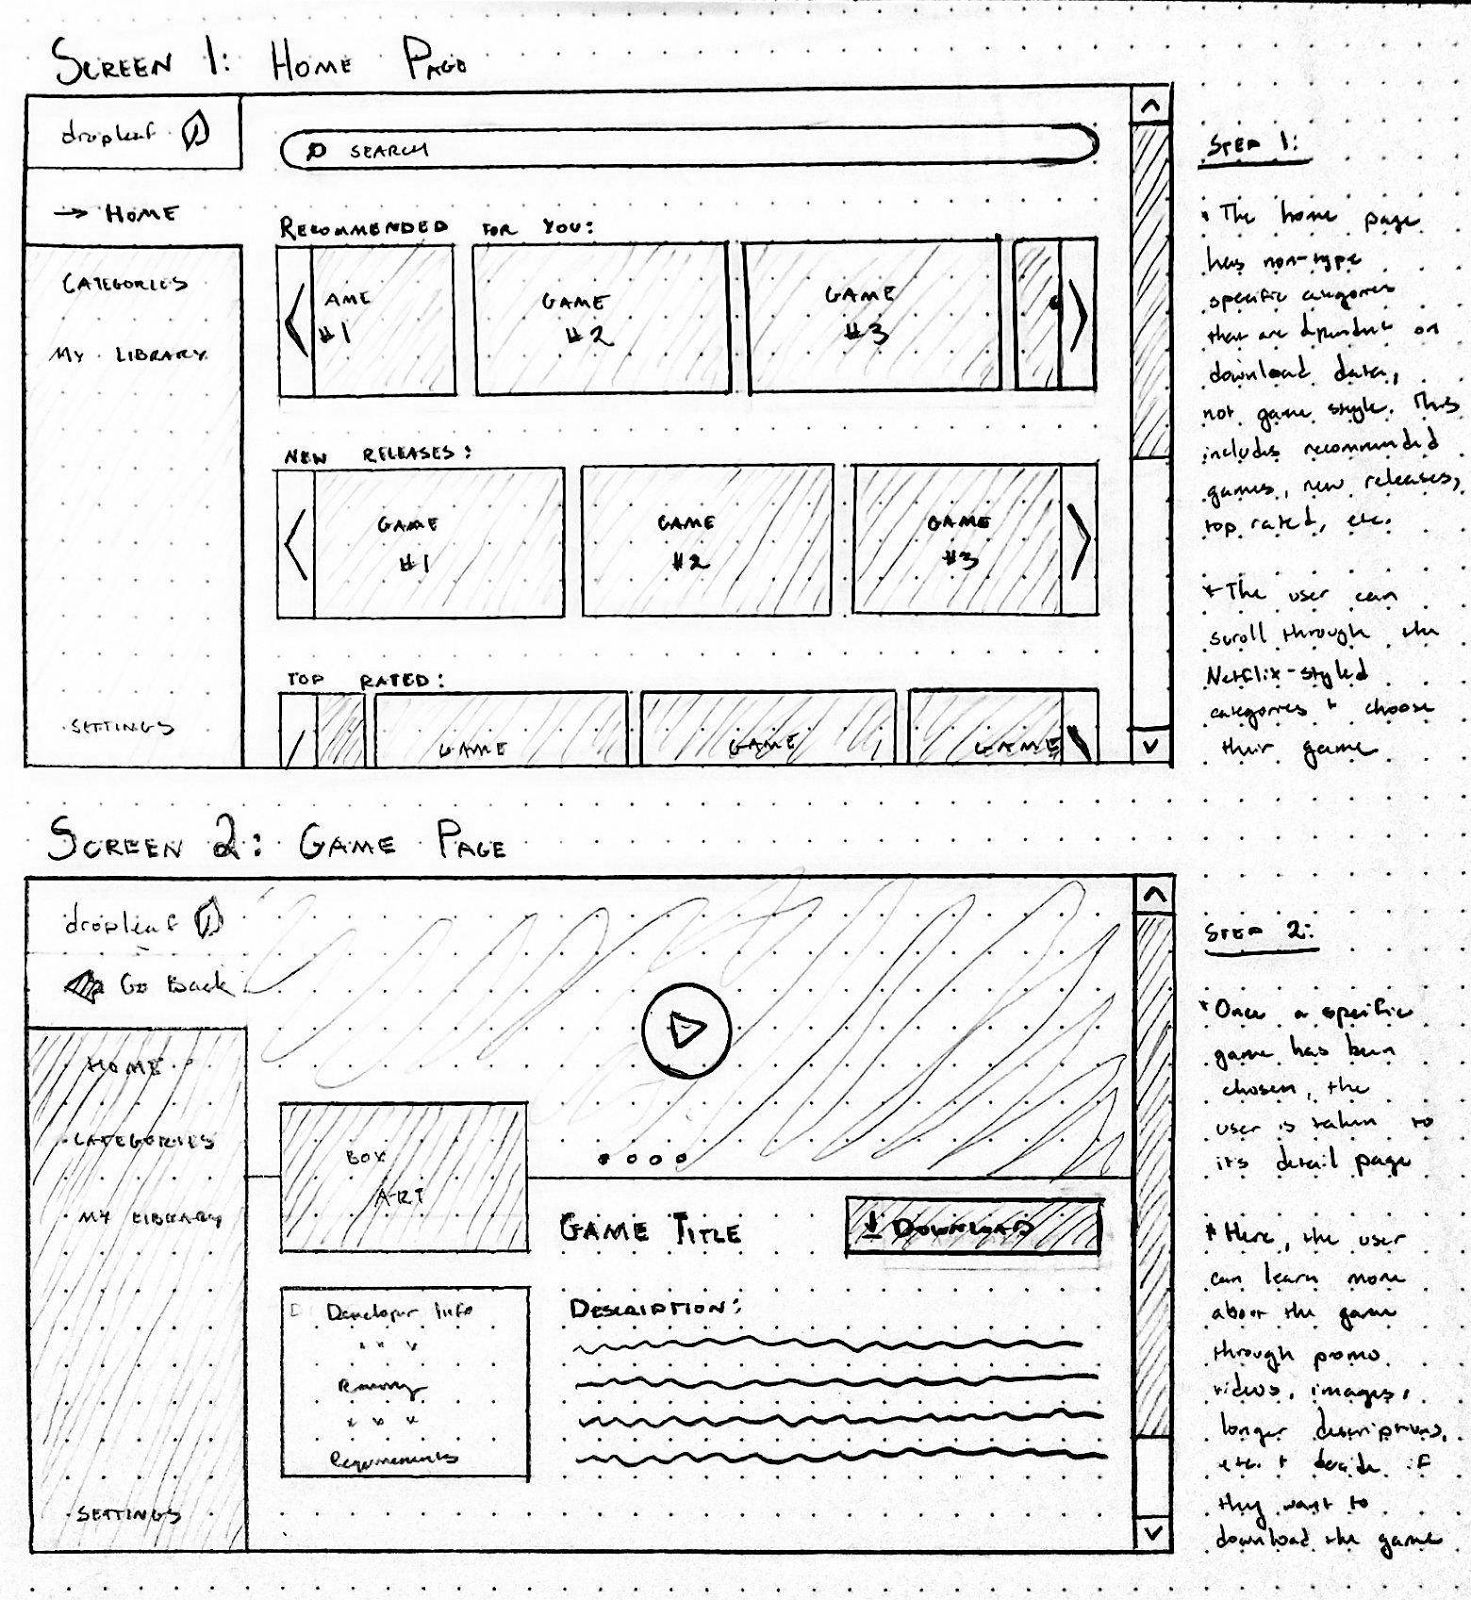 SCREEN 1: HOME PAGE
dropleaf
SEARCH
→ HOME
CATEGORIES
MY LIBRARY
SETTINGS
RECOMMENDED FOR YOU:
AME
#1
GAME
#2
GAME
#3
NEW RELEASES:
GAME
#1
GAME
#2
GAME
#3
TOP RATED:
GAME
GAME
GAME
STEP 1:
* The home page
has non-type
specific categories
that are dependent on
download data,
not game style. This
includes recommended
games, new releases,
top rated, etc.
* The user can
scroll through the
Netflix-styled
categories + choose
their game
SCREEN 2: GAME PAGE
dropleaf
Go Back
HOME
CATEGORIES
MY LIBRARY
SETTINGS
BOX
ART
GAME TITLE
DOWNLOAD
Developer Info
* * *
Rating
* * *
Requirements
DESCRIPTION:
STEP 2:
* Once a specific
game has been
chosen, the
user is taken to
its detail page
* Here, the user
can learn more
about the game
through promo
videos, images,
longer descriptions,
etc. + decide if
they want to
download the game